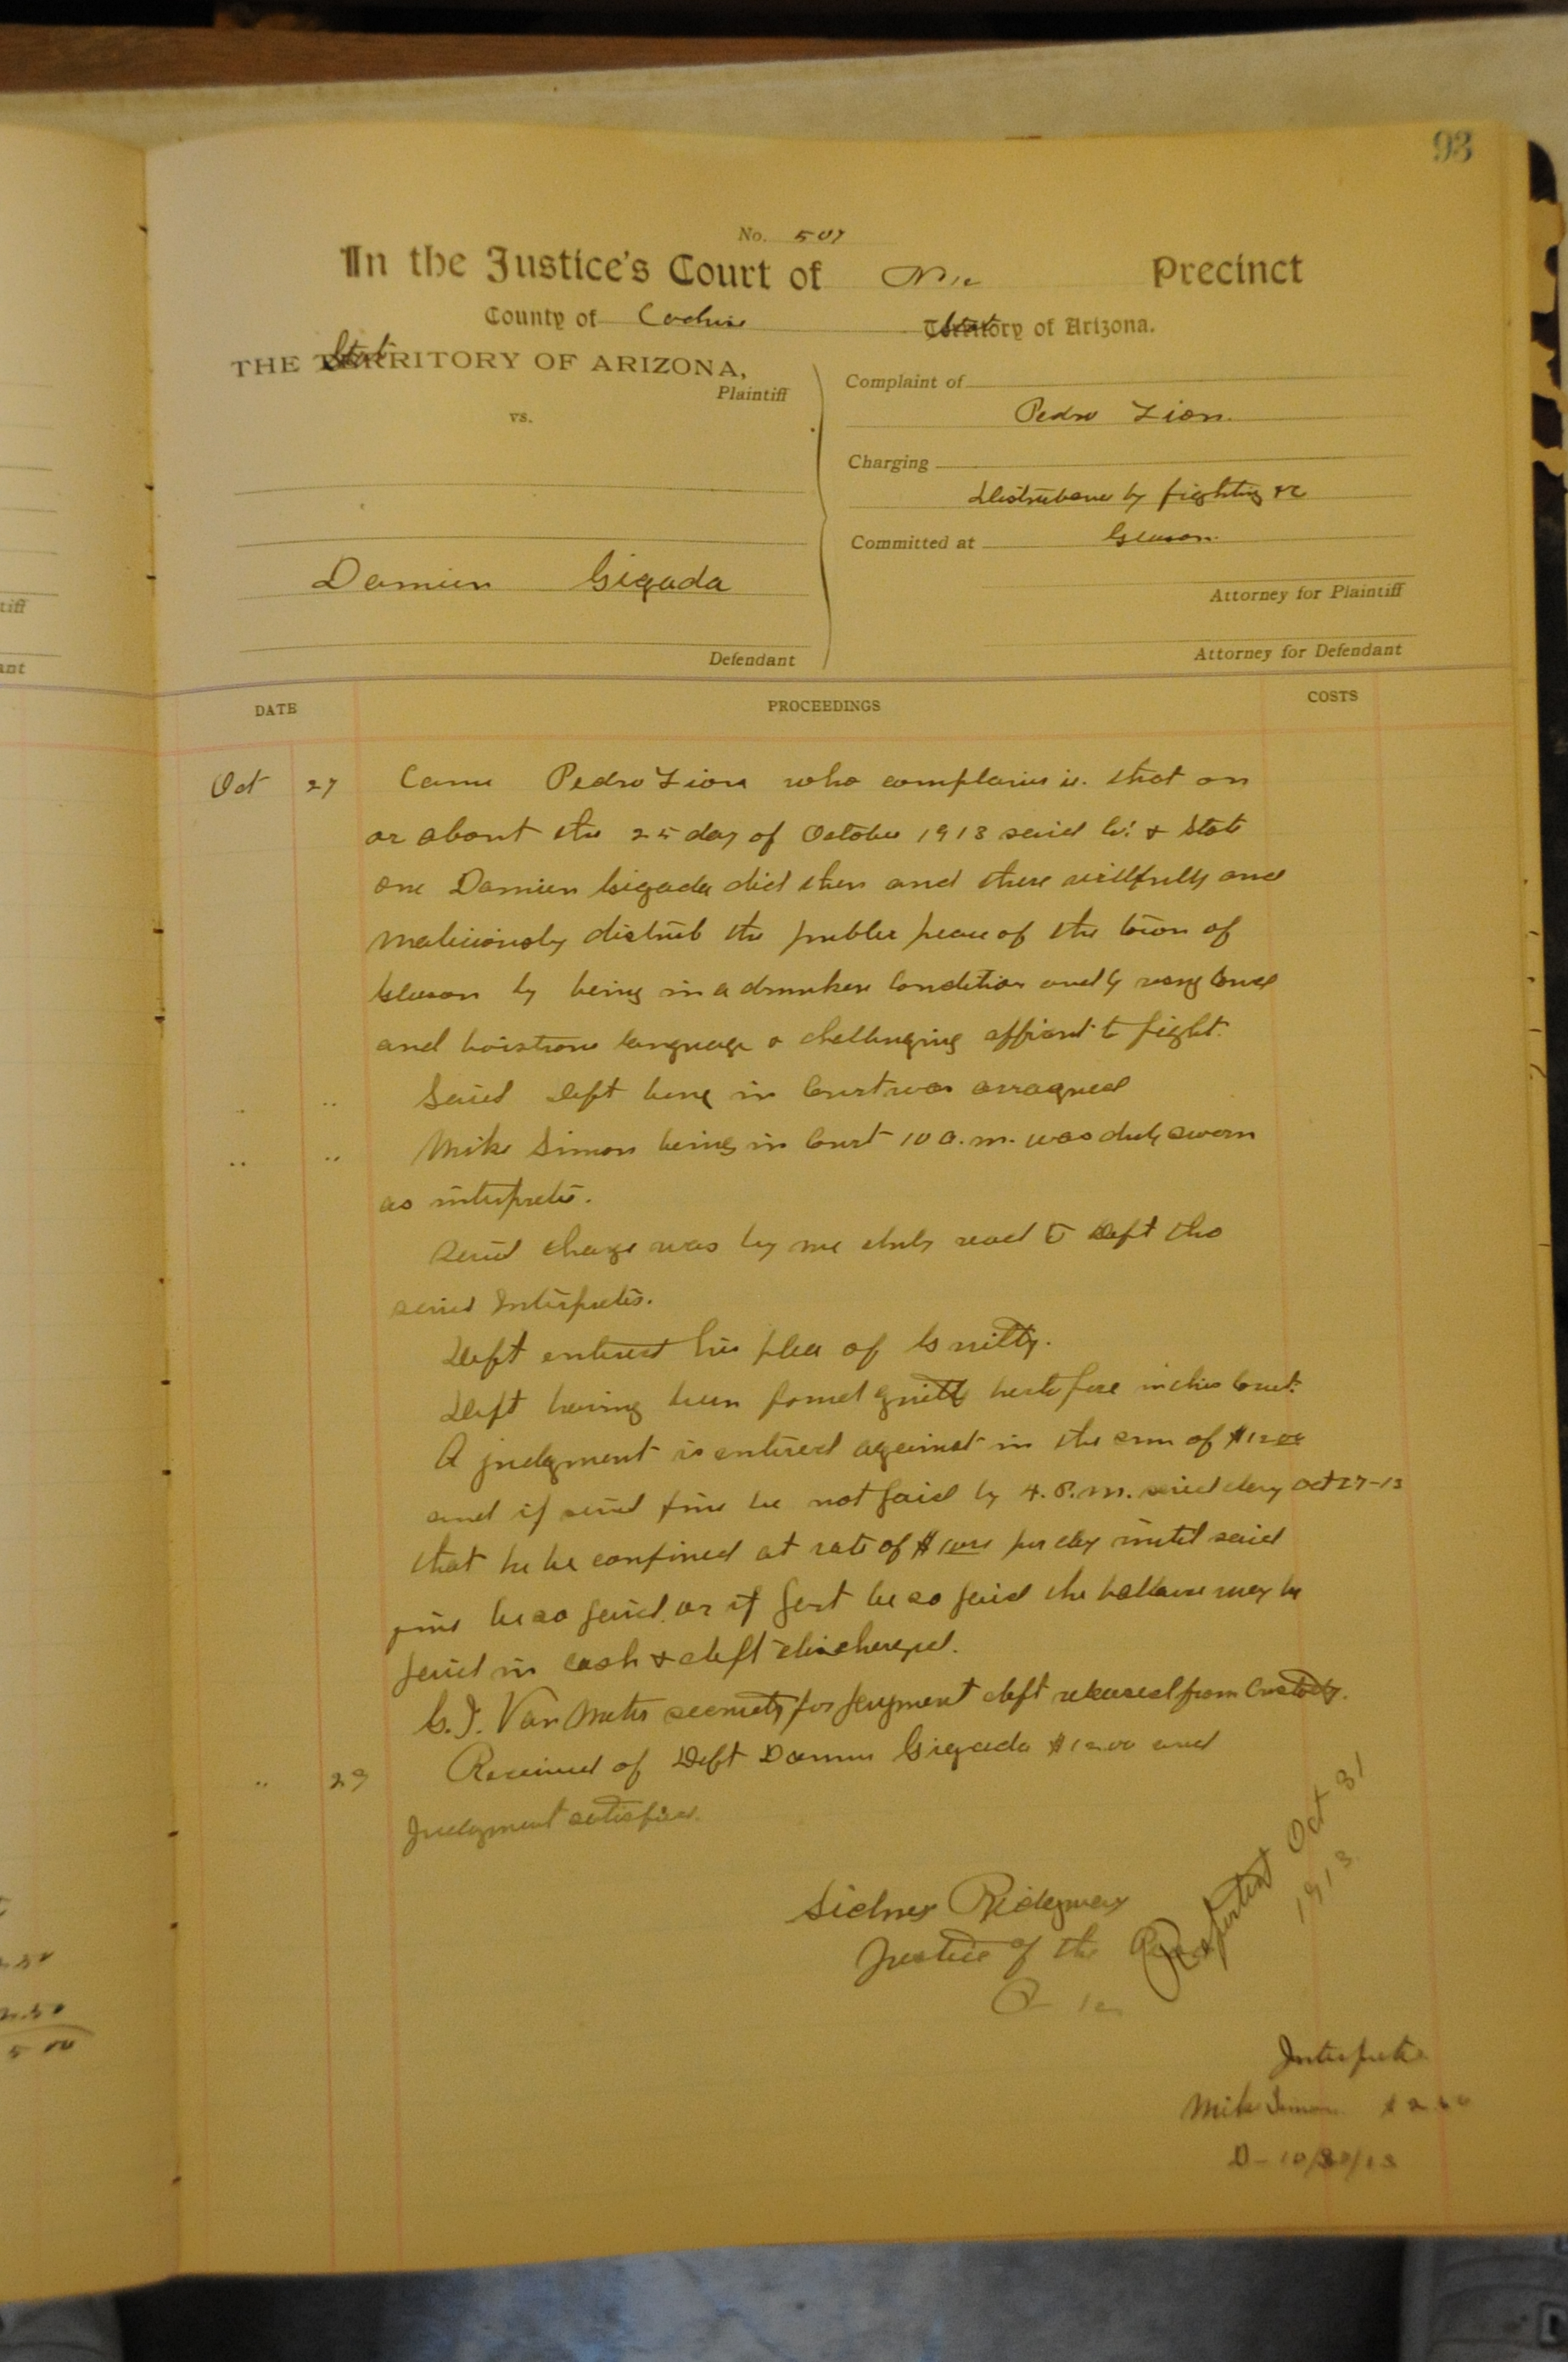 93
No. 507
In the Justice's Court of No 12 Precinct
County of Cochise State Territory of Arizona.
THE State TERRITORY OF ARIZONA,
Plaintiff
vs.
Damien Gigada
Defendant
Complaint of
Pedro Lion.
Charging
Distrubance by fighting &c
Committed at Gleason.
Attorney for Plaintiff
Attorney for Defendant
DATE PROCEEDINGS COSTS
Oct 27 Came Pedro Lion who complains is. that on
or about the 25 day of October 1913 said Co. & State
one Damien Gigada did then and there willfully and
Maliciously distrub the public peace of the town of
Gleason by being in a drunken Condition and by very loud
and boistrous language & challenging affiant to fight.
.. .. Said Deft being in Court was arragned
.. .. Mike Simon being in Court 10 a.m. was duly sworn
as interpreter.
Said charge was by me duly read to Deft tho
said Interpreter.
Deft entered his plea of Guilty.
Deft having been found guilty heretofore in this Court.
A judgment is entered against in the sum of $12.00
and if said fine be not paid by 4. P.M. said day Oct 27-13
that he be confined at rate of $1.00 per day until said
fine be so paid. or if part be so paid the ballance may be
paid in cash & deft discharged.
Van Meter security for payment deft released from Custody.
.. 29 Received of Deft Damien Gigada $12.00 and
Judgment satisfied.
Sidney Ridgway
Justice of the Peace
Reported Oct 31
1913
Interpreter
Mike Simon $2.50
D- 10/30/13
tiff
ant
2.50
2.50
5 00